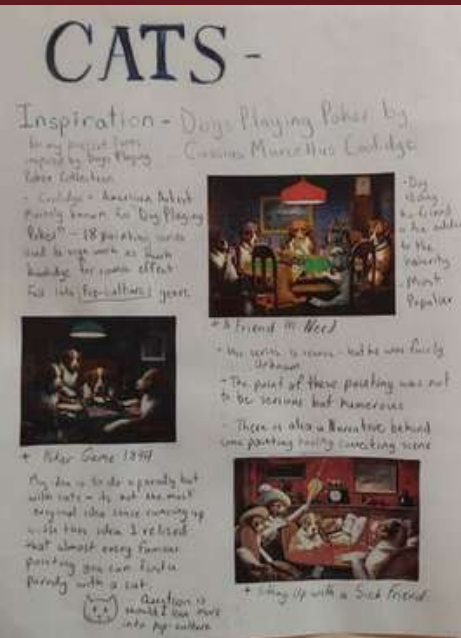 CATS -
Inspiration - Dogs Playing Poker by
Cassius Marcellus Coolidge
In my project I was
inspired by Dogs Playing
Poker Collection
- Coolidge - American Artist
Mainly known for "Dog Playing
Poker" - 18 painting series
used to sign work as
for comic effect
Fall into Pop-culture years
- Dog
his friend
- he adds
to the
- Most
Popular
+ A friend in Need
- His series is iconic - but he was fairly
Unknown
- The point of these painting was not
to be serious but humorous
- There is also a Narrative behind
painting connecting scene
+ Poker Game 1894
My idea is to do a parody but
with cats - its not the most
original idea since coming up
with this idea I relised
that almost every famous
painting you can find a
parody with a cat.
- Question is
should I lean more
into pop-culture
+ Sitting Up with a Sick Friend.